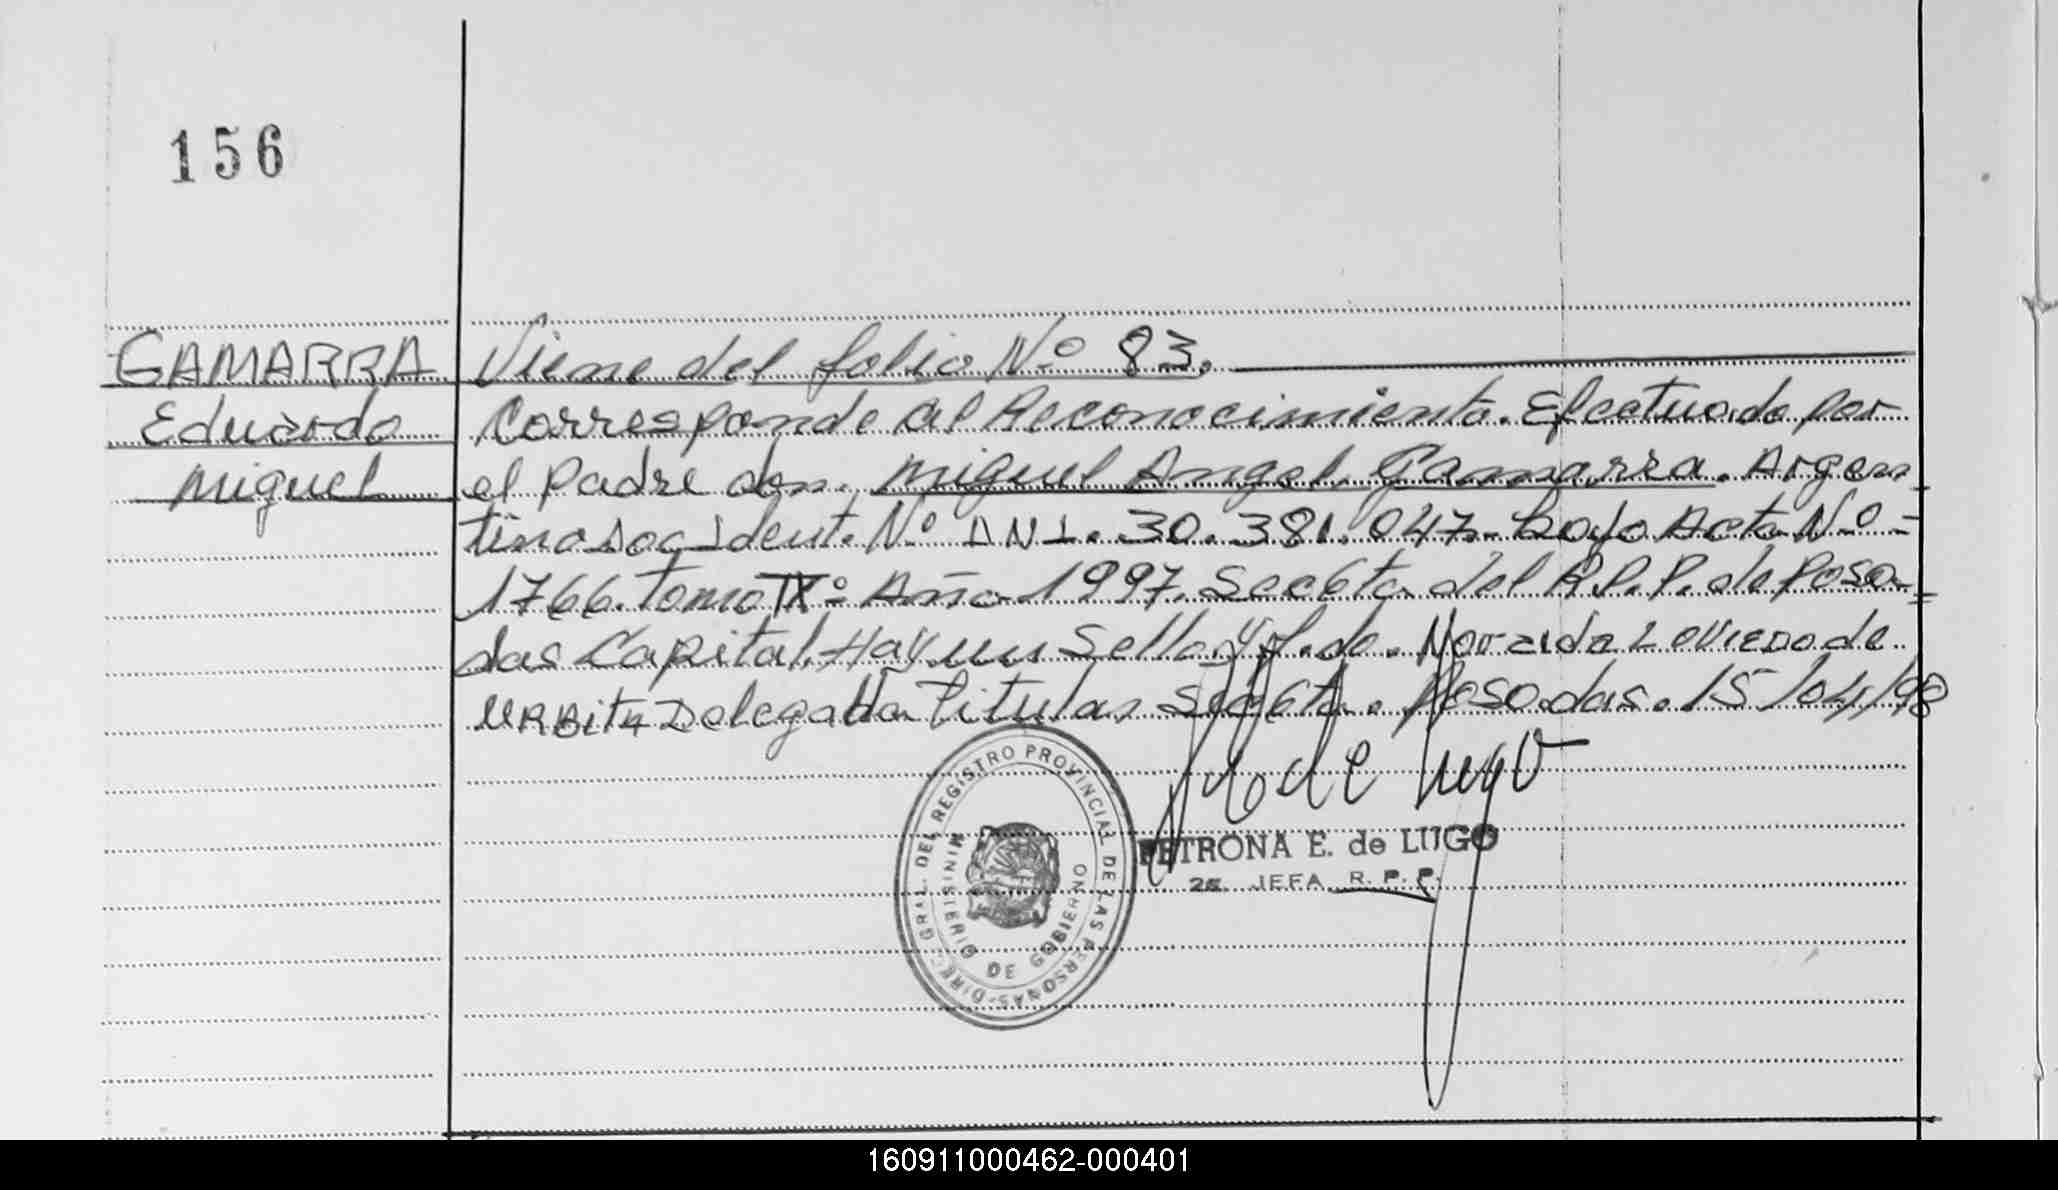 156
GAMARRA
Eduardo
Miguel
Viene del folio Nº 83.
Corresponde al Reconocimiento. Efectuado por
el Padre don. Miguel Angel Gamarra. Argen
tino Doc Ident. Nº DNI. 30.381.047.- bajo Acta Nº -
1766. Tomo IXº Año 1997. Secc 6ta del R.P.P. de Posa=
das Capital. Hay un Sello y f.do. Norzida L oviedo de
URBita Delegada Titular Secc 6ta. Posadas. 15/04/98
de Lugo
DIREC. GRAL. DEL REGISTRO PROVINCIAL DE LAS PERSONAS-
MINISTERIO DE GOBIERNO
PETRONA E. de LUGO
JEFA R. P. P.
160911000462-000401